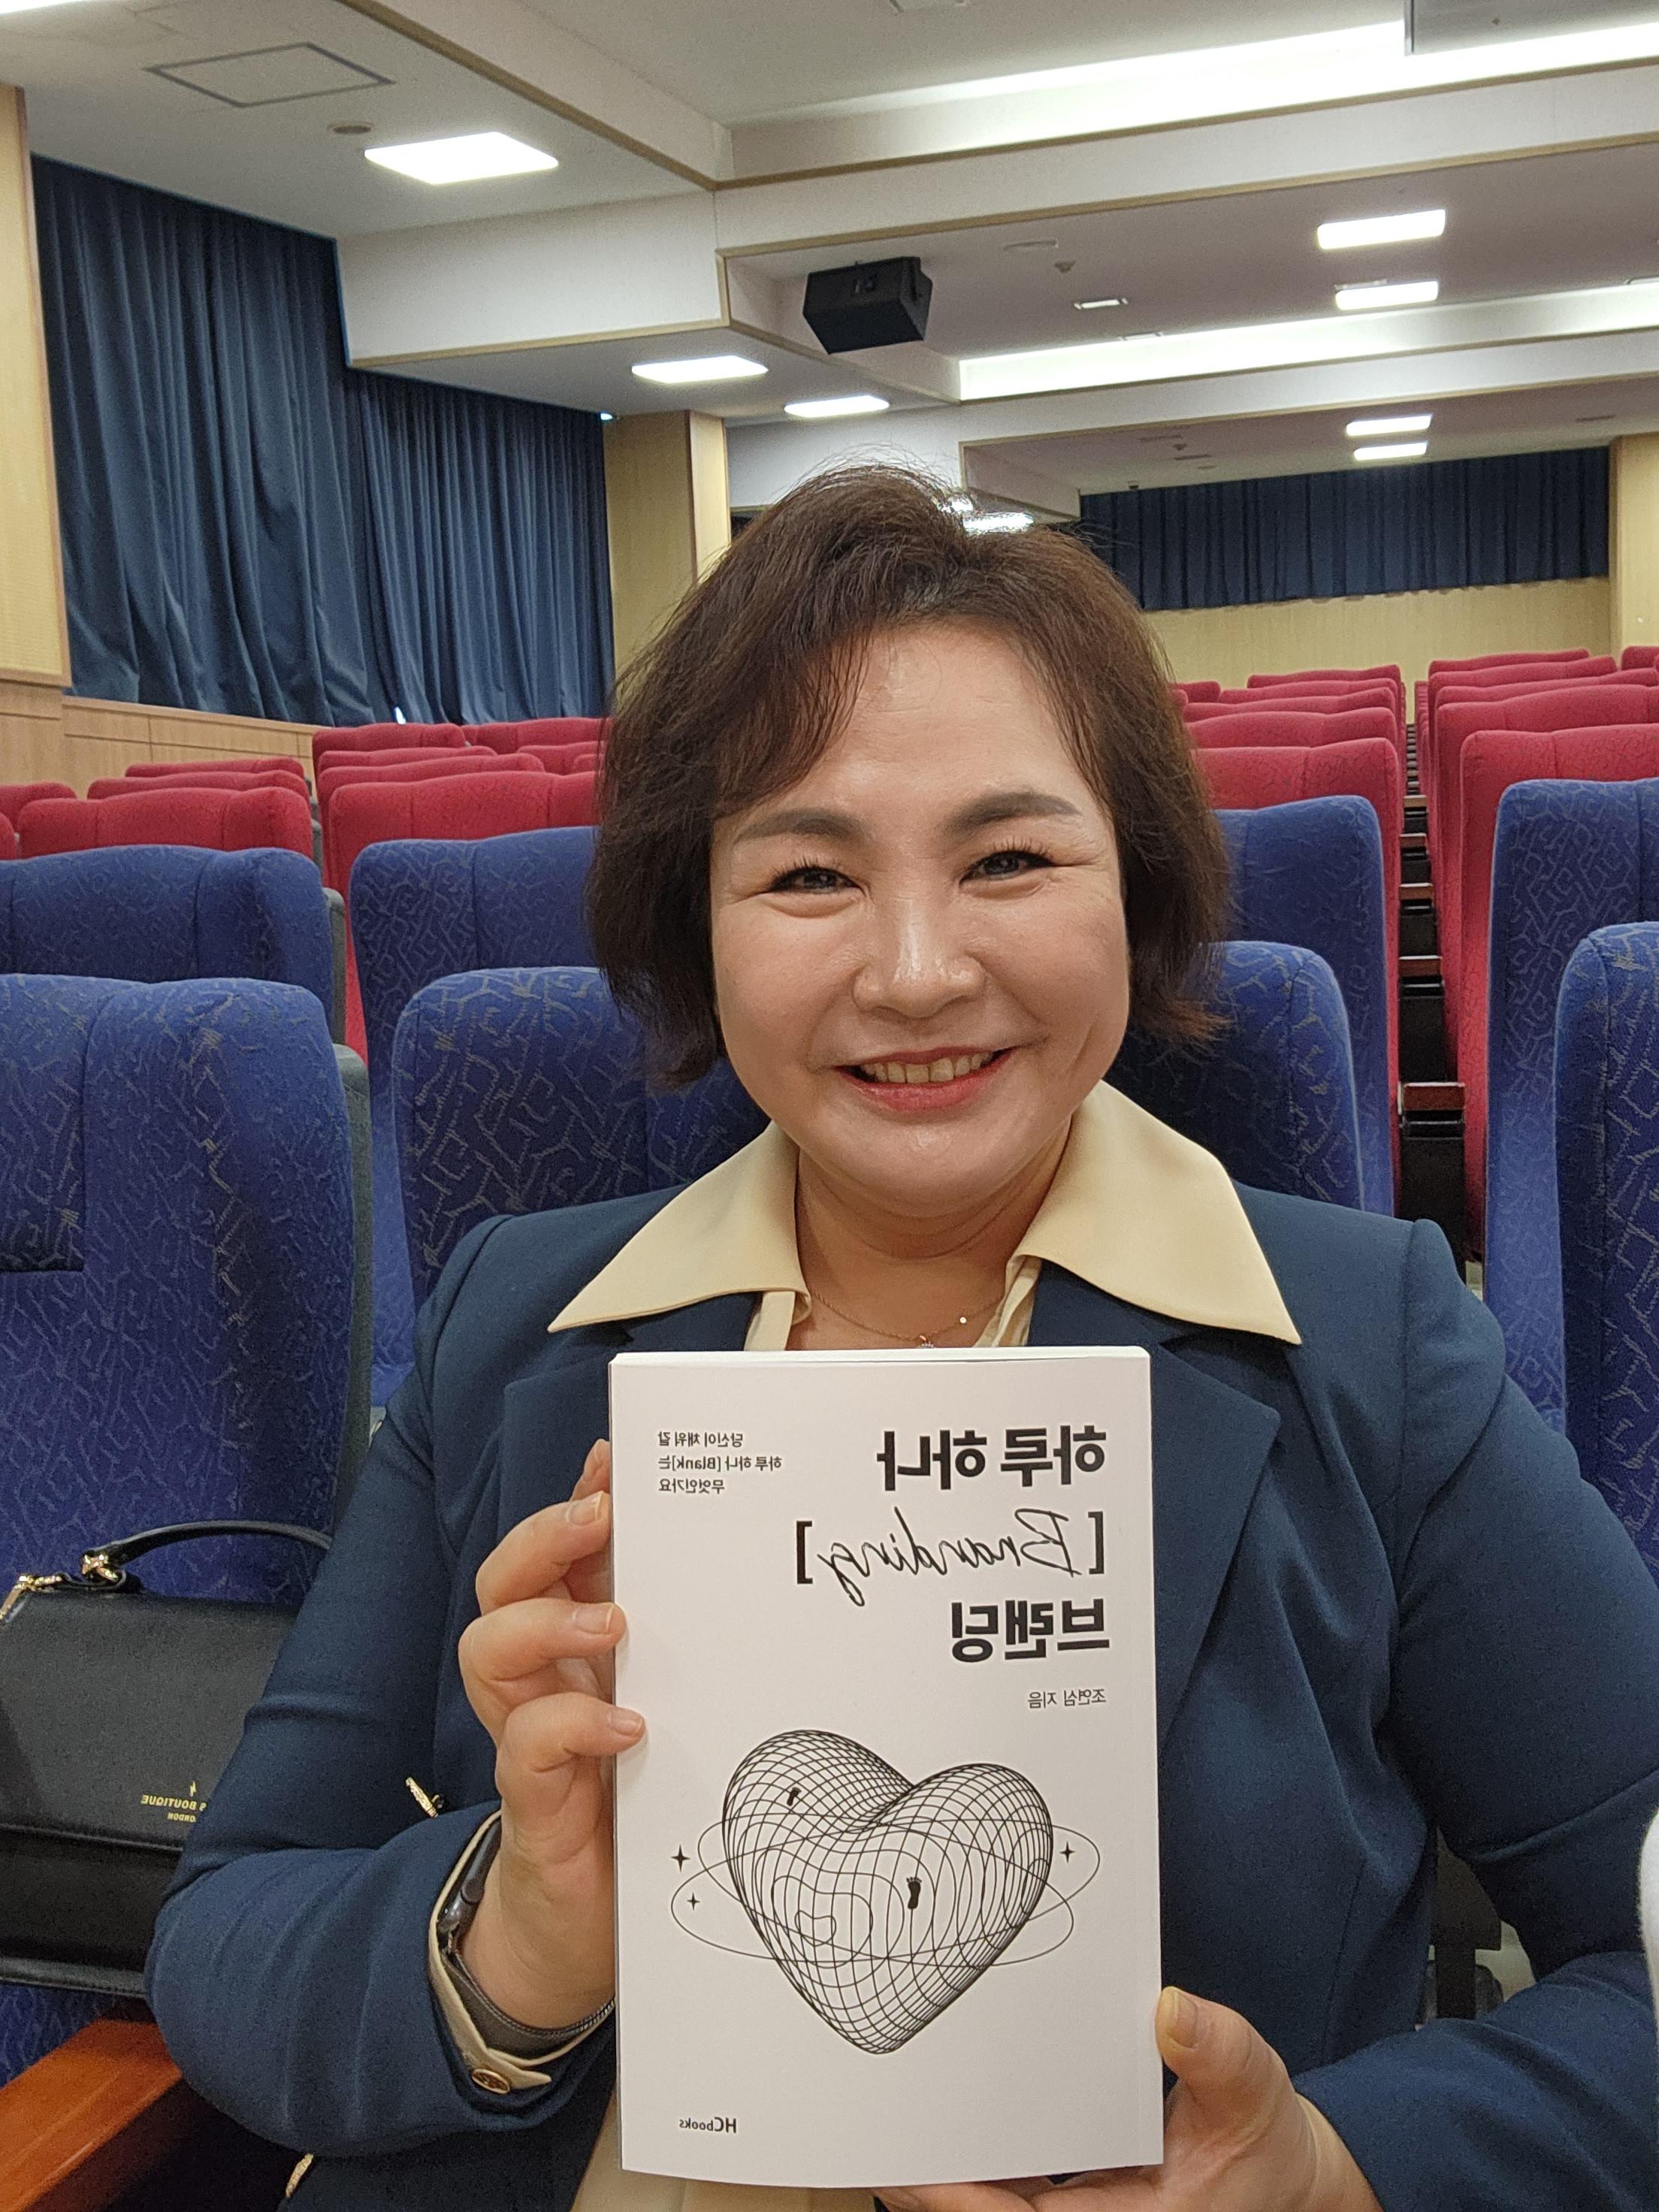 하루 하나
[Branding]
브랜딩
조연심 지음
당신이 채워 갈
하루 하나 [Blank]는
무엇인가요
HCbooks
S BOUTIQUE
LONDON